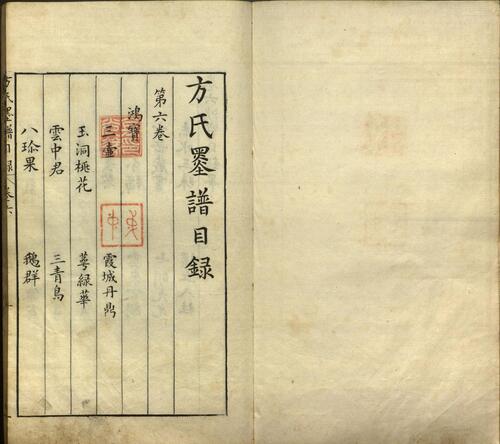 方氏墨譜目録
第六卷
鴻寶
三壷 霞城丹鼎
玉洞桃花 萼緑華
雲中君 三青鳥
八珍果 鵝群
方氏墨譜目録 卷六